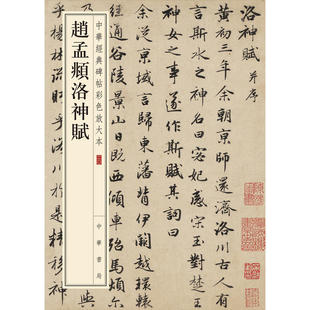 中華經典碑帖彩色放大本
趙孟頫洛神賦
中華書局
洛神賦 并序
黃初三年余朝京師還濟洛川古人有
言斯水之神名曰宓妃感宋玉對楚王
神女之事遂作斯賦其詞曰
余從京域言歸東藩背伊闕越轘轅
經通谷陵景山日既西傾車殆馬煩尔
與
乎楊林流眄乎洛川於是精移神